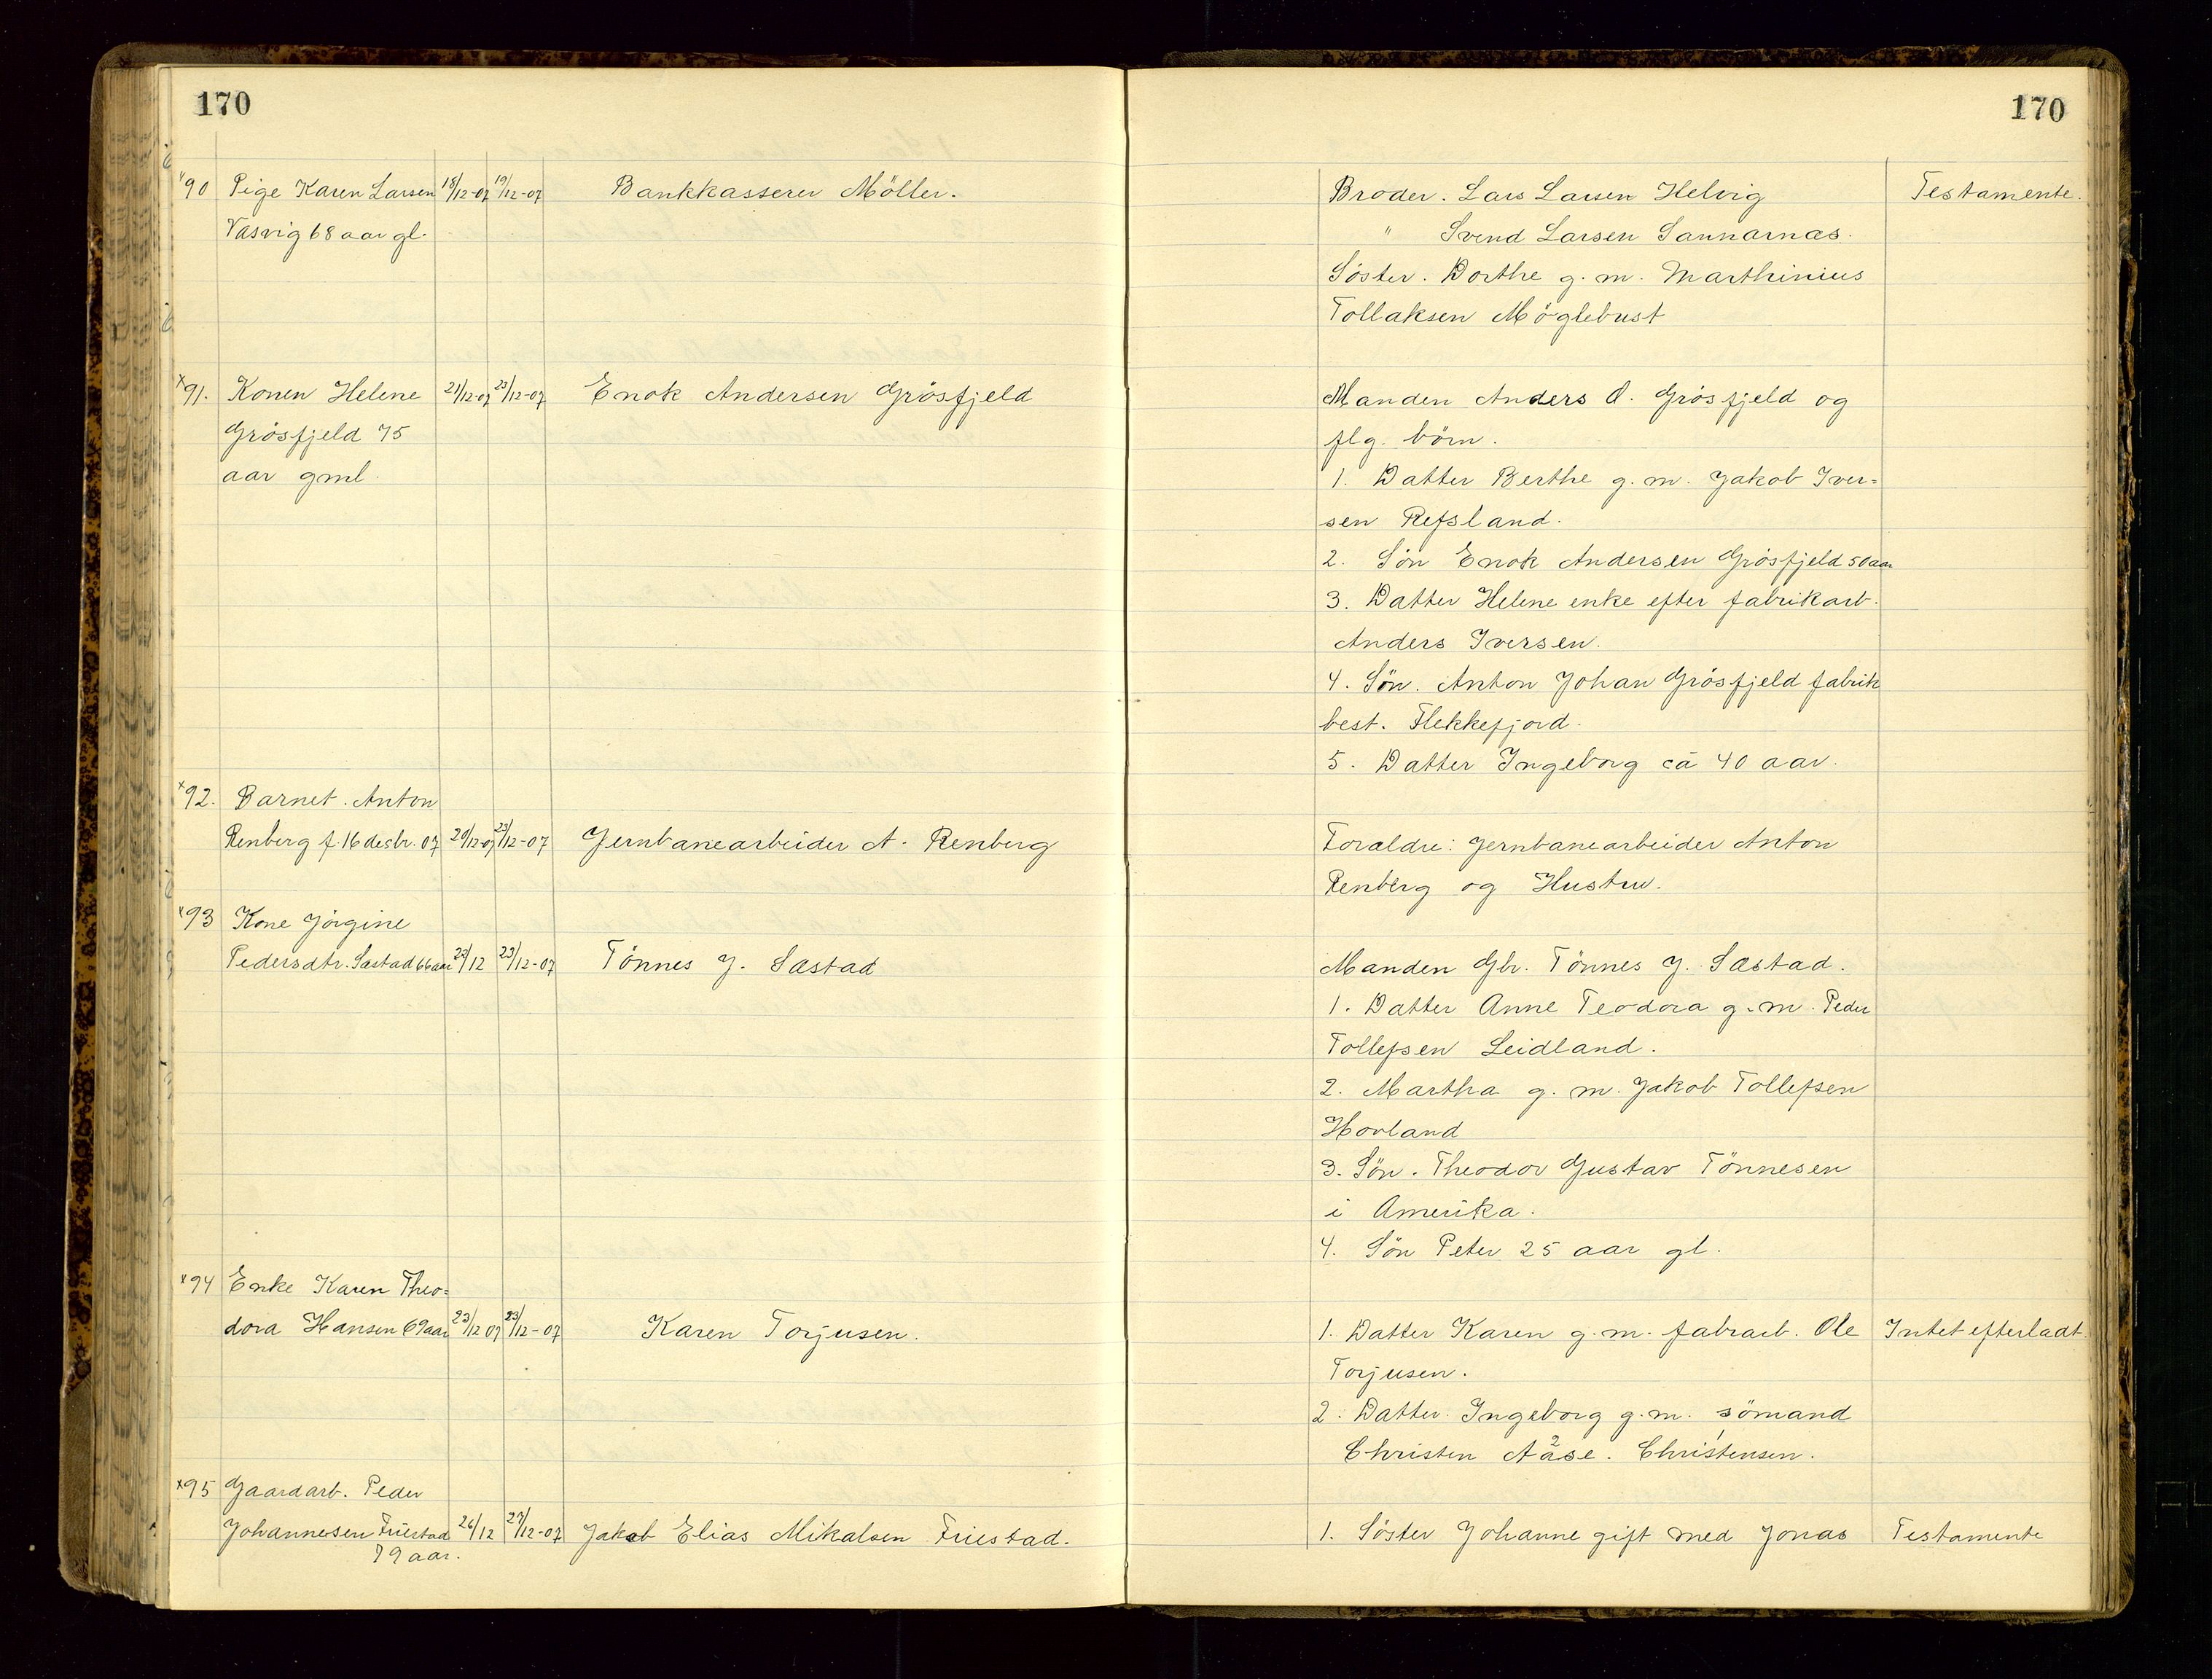 170
170
"90 Pige Karen Larsen 18/12-07 19/12-07 Bankkasserer Möller. Broder. Lars Larsen Helvig Testamente.
Vasvig 68 aar gl. " Svend Larsen Sannarnæs.
Söster. Dorthe g. m. Marthinius
Tollaksen Möglebust
x91. Konen Helene 21/12-07 23/12-07 Enok Andersen Grösfjeld Manden Anders O. Grösfjeld og
Grösfjeld 75 flg. börn.
aar gml. 1. Datter Berthe g. m. Jakob Iver=
sen Refsland.
2. Sön Enok Andersen Grösfjeld 50 aar
3. Datter Helene enke efter fabrikarb.
Anders Iversen.
4. Sön. Anton Johan Grösfjeld fabrik
best. Flekkefjord.
5. Datter Ingeborg ca 40 aar.
x92. Barnet. Anton
Renberg f. 16 desbr. 07 20/12-07 23/12-07 Jernbanearbeider A. Renberg Forældre: Jernbanearbeider Anton
Renberg og Hustru.
x93 Kone Jörgine
Pedersdtr. Sæstad 66 aar 22/12 23/12-07 Tönnes J. Sæstad Manden Gbr. Tönnes J. Sæstad.
1. Datter Anne Teodora g. m. Peder
Tollefsen Leidland.
2. Martha g. m. Jakob Tollefsen
Hovland
3. Sön. Theodor Gustav Tönnesen
i Amerika.
4. Sön Peter 25 aar gl.
x94 Enke Karen Theo=
dora Hansen 69 aar 22/12 07 23/12-07 Karen Torjusen. 1. Datter Karen g. m. fabrarb. Ole Intet efterladt.
Torjusen.
2. Datter Ingeborg g. m. sömand
Christen Aase. Christensen.
x95 Gaardarb. Peder
Johannesen Friestad 26/12 27/12-07 Jakob Elias Mikalsen Friestad. 1. Söster Johanne gift med Jonas Testamente
79 aar.